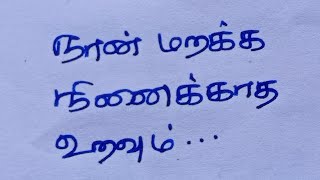 நான் மறக்க
நினைக்காத
உறவும்...